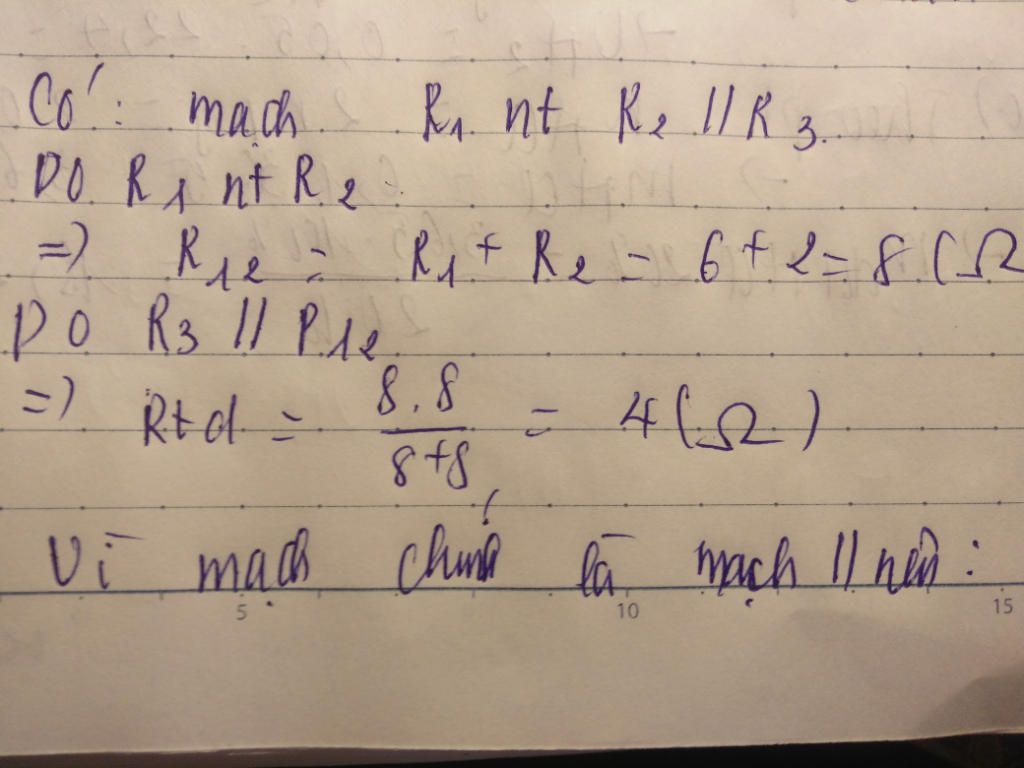 Có: mạch R₁ nt R₂ // R₃.
DO R₁ nt R₂
=> R₁₂ = R₁ + R₂ = 6 + 2 = 8 (Ω
DO R₃ // R₁₂
=> Rtd = \frac{8.8}{8+8} = 4 (Ω)
Vì mạch chính là mạch // nên:
5 10 15